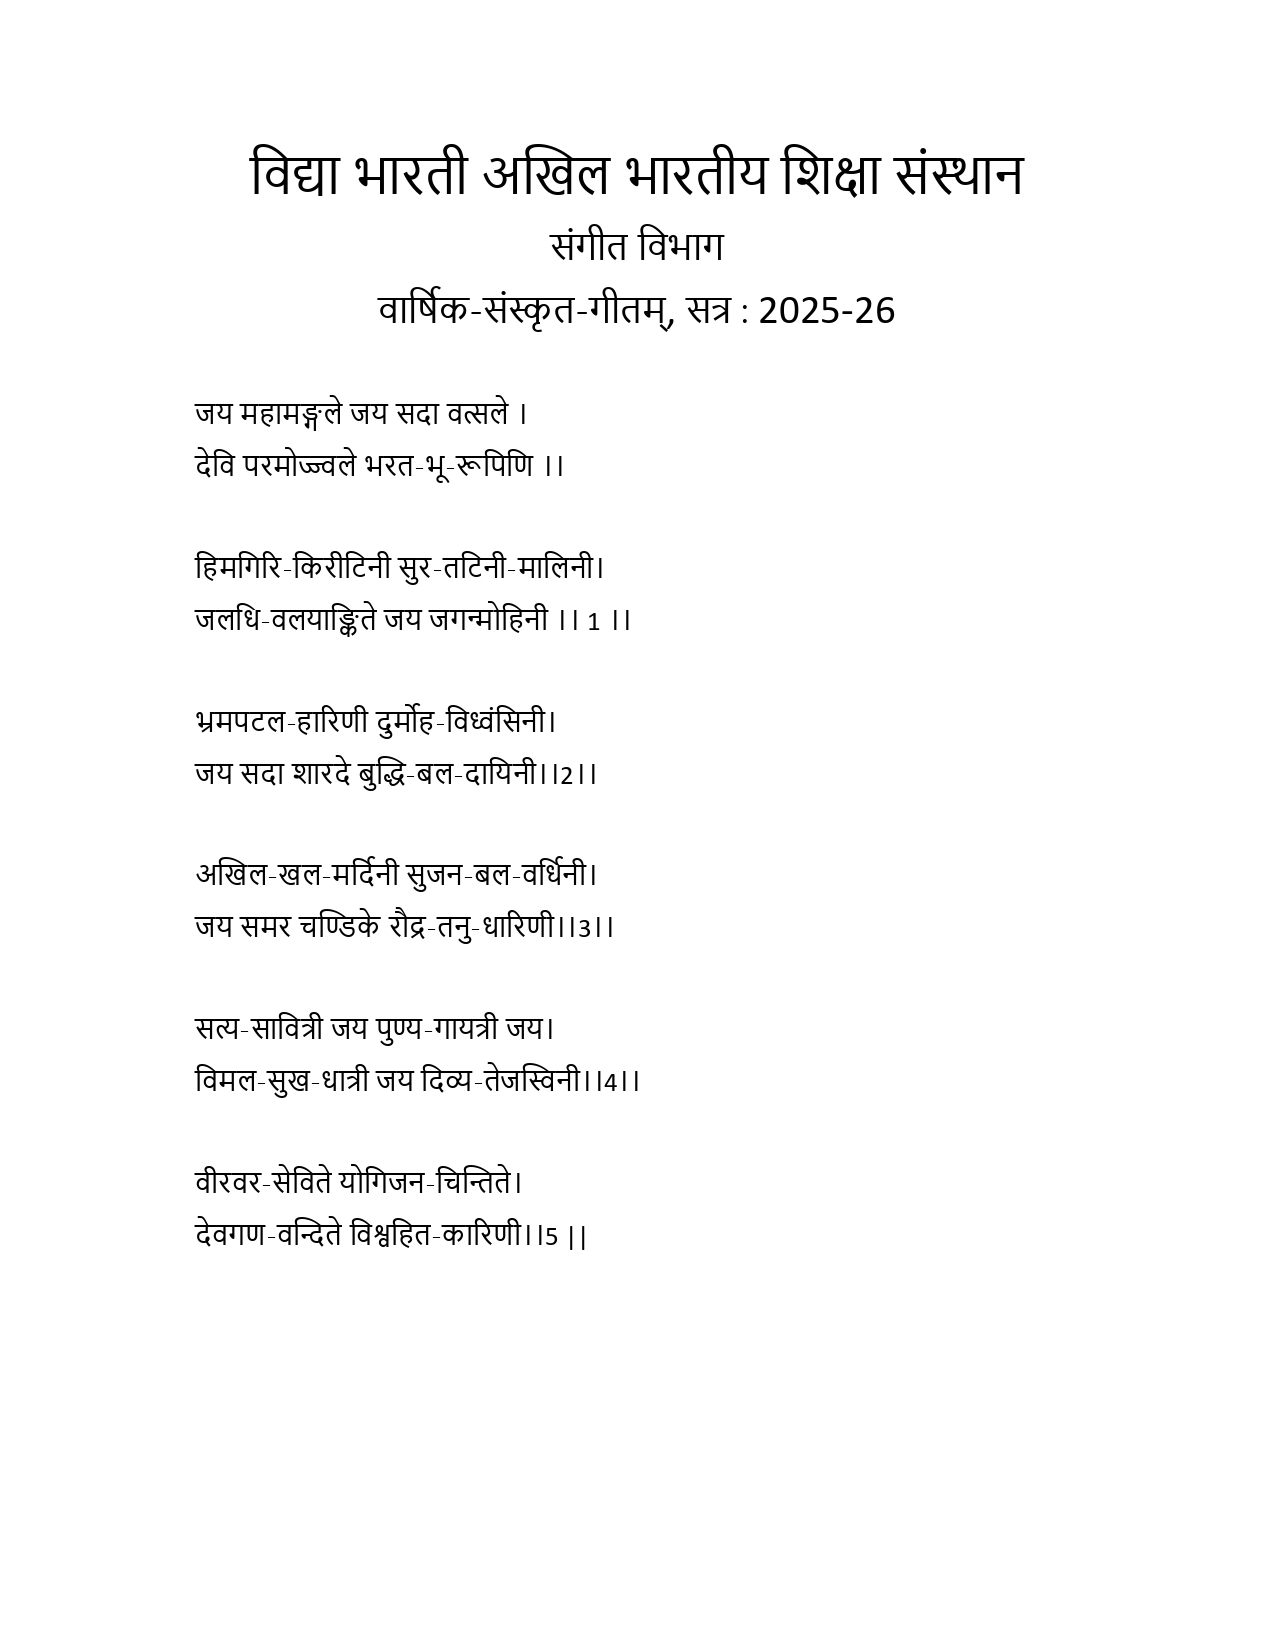 विद्या भारती अखिल भारतीय शिक्षा संस्थान
संगीत विभाग
वार्षिक-संस्कृत-गीतम्, सत्र : 2025-26
जय महामङ्गले जय सदा वत्सले ।
देवि परमोज्ज्वले भरत-भू-रूपिणि ।।
हिमगिरि-किरीटिनी सुर-तटिनी-मालिनी।
जलधि-वलयाङ्किते जय जगन्मोहिनी ।। 1 ।।
भ्रमपटल-हारिणी दुर्मोह-विध्वंसिनी।
जय सदा शारदे बुद्धि-बल-दायिनी।।2।।
अखिल-खल-मर्दिनी सुजन-बल-वर्धिनी।
जय समर चण्डिके रौद्र-तनु-धारिणी।।3।।
सत्य-सावित्री जय पुण्य-गायत्री जय।
विमल-सुख-धात्री जय दिव्य-तेजस्विनी।।4।।
वीरवर-सेविते योगिजन-चिन्तिते।
देवगण-वन्दिते विश्वहित-कारिणी।।5 ||